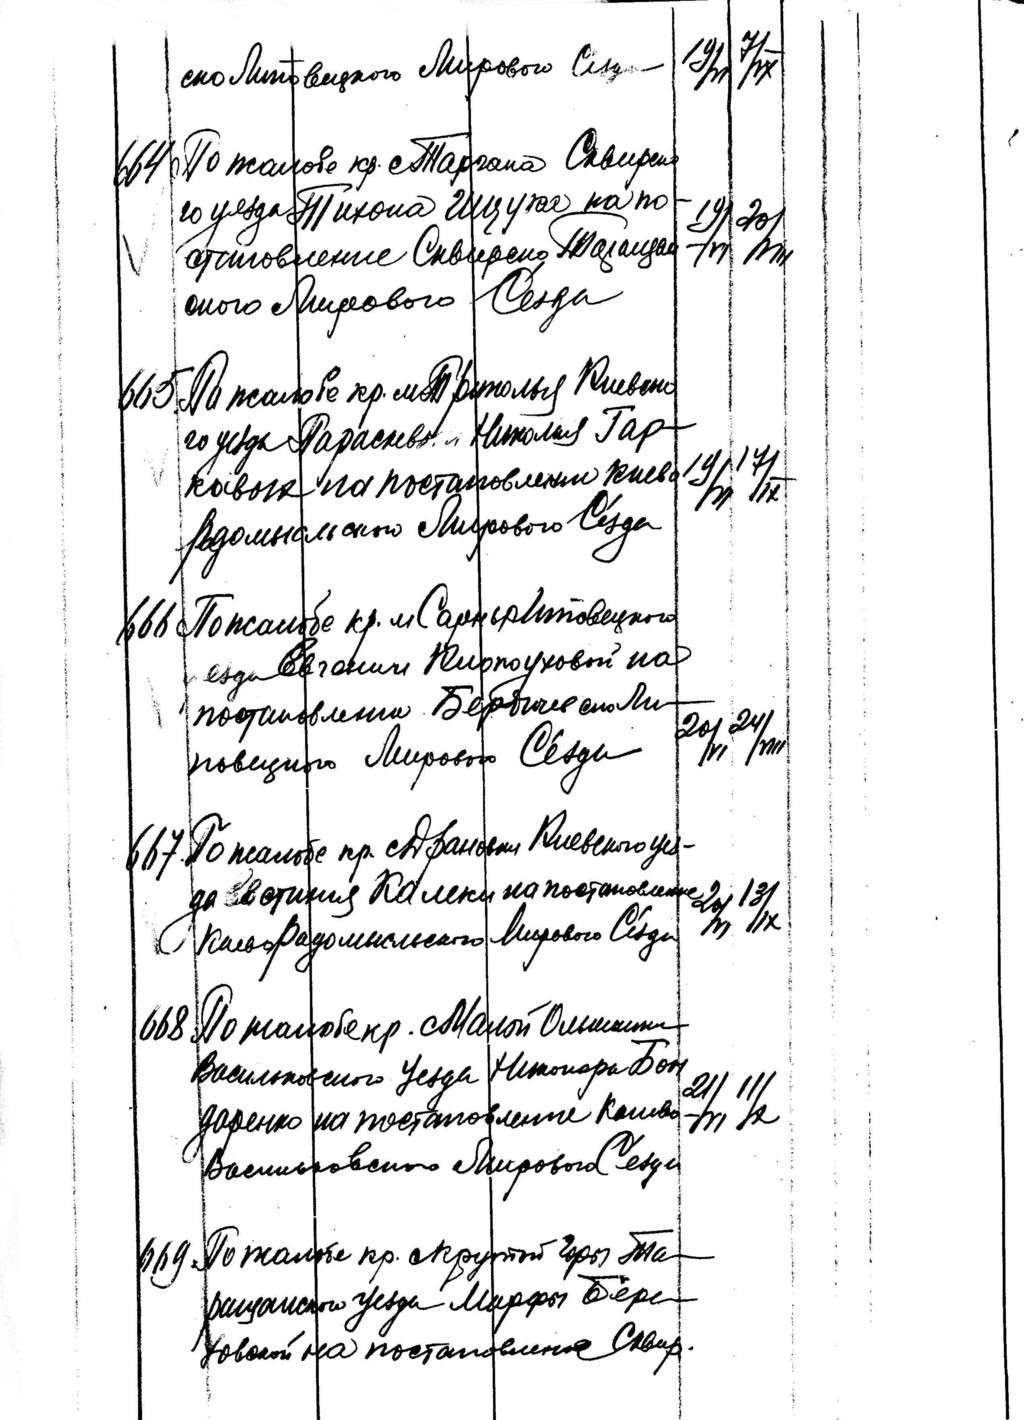 ско Липовецкого Мирового Сезда 19/VI 7/IX
664 По жалобе кр. с Таргана Сквирско
го уезда Тихона Ищука на по-
становление Сквирско Таращан
ского Мирового Сезда 19/VI 20/VIII
665. По жалобе кр. м Триполья Киевско
го уезда Параскевы и Николая Гар-
кавых на постановление Киево 19/VI 17/IX
Радомысльского Мирового Сезда
666 По жалобе кр. м Сарны Липовецкого
уезда Евгении Клопоуховой на
постановление Бердичевско Ли-
повецкого Мирового Сезда 20/VI 24/VIII
667. По жалобе кр. с Абрамовки Киевского уез-
да Евстиния Калеки на постановление
Киево Радомысльского Мирового Сезда 20/VI 13/IX
668 По жалобе кр. с Малой Ольшанки
Васильковского уезда Никонора Бон
даренко на постановление Киево- 21/VI 11/X
Васильковского Мирового Сезда
669. По жалобе кр. с Крутой горы Та-
ращанского уезда Марфы Бере-
зовской на постановление Сквир.